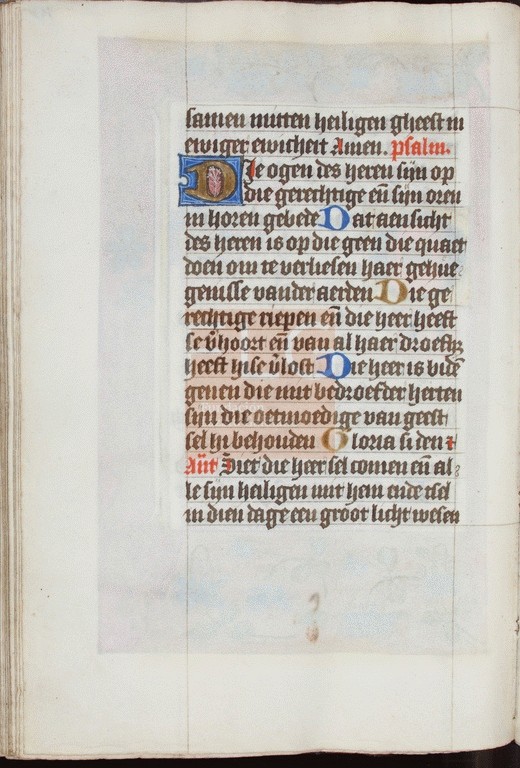 samen mitten heiligen gheest in
ewiger ewicheit Amen. psalm.
Die ogen des heren sijn op
die gerechtige en̄ sijn oren
in horen gebede Dat aensicht
des heren is op die geen die quaet
doen om te verliesen haer gehue
genisse vander aerden Die ge
rechtige riepen en̄ die heer heeft
se v̄hoort en̄ van al haer droefhz
heeft hise v̄lost Die heer is bidē
genen die mit bedroefder herten
sijn die oetmoedige van geest
sel hi behouden Gloria si den t
Ant̄ Siet die heer sel comen en̄ al
le sijn heiligen mit hem ende tsel
in dien dage een groot licht wesen